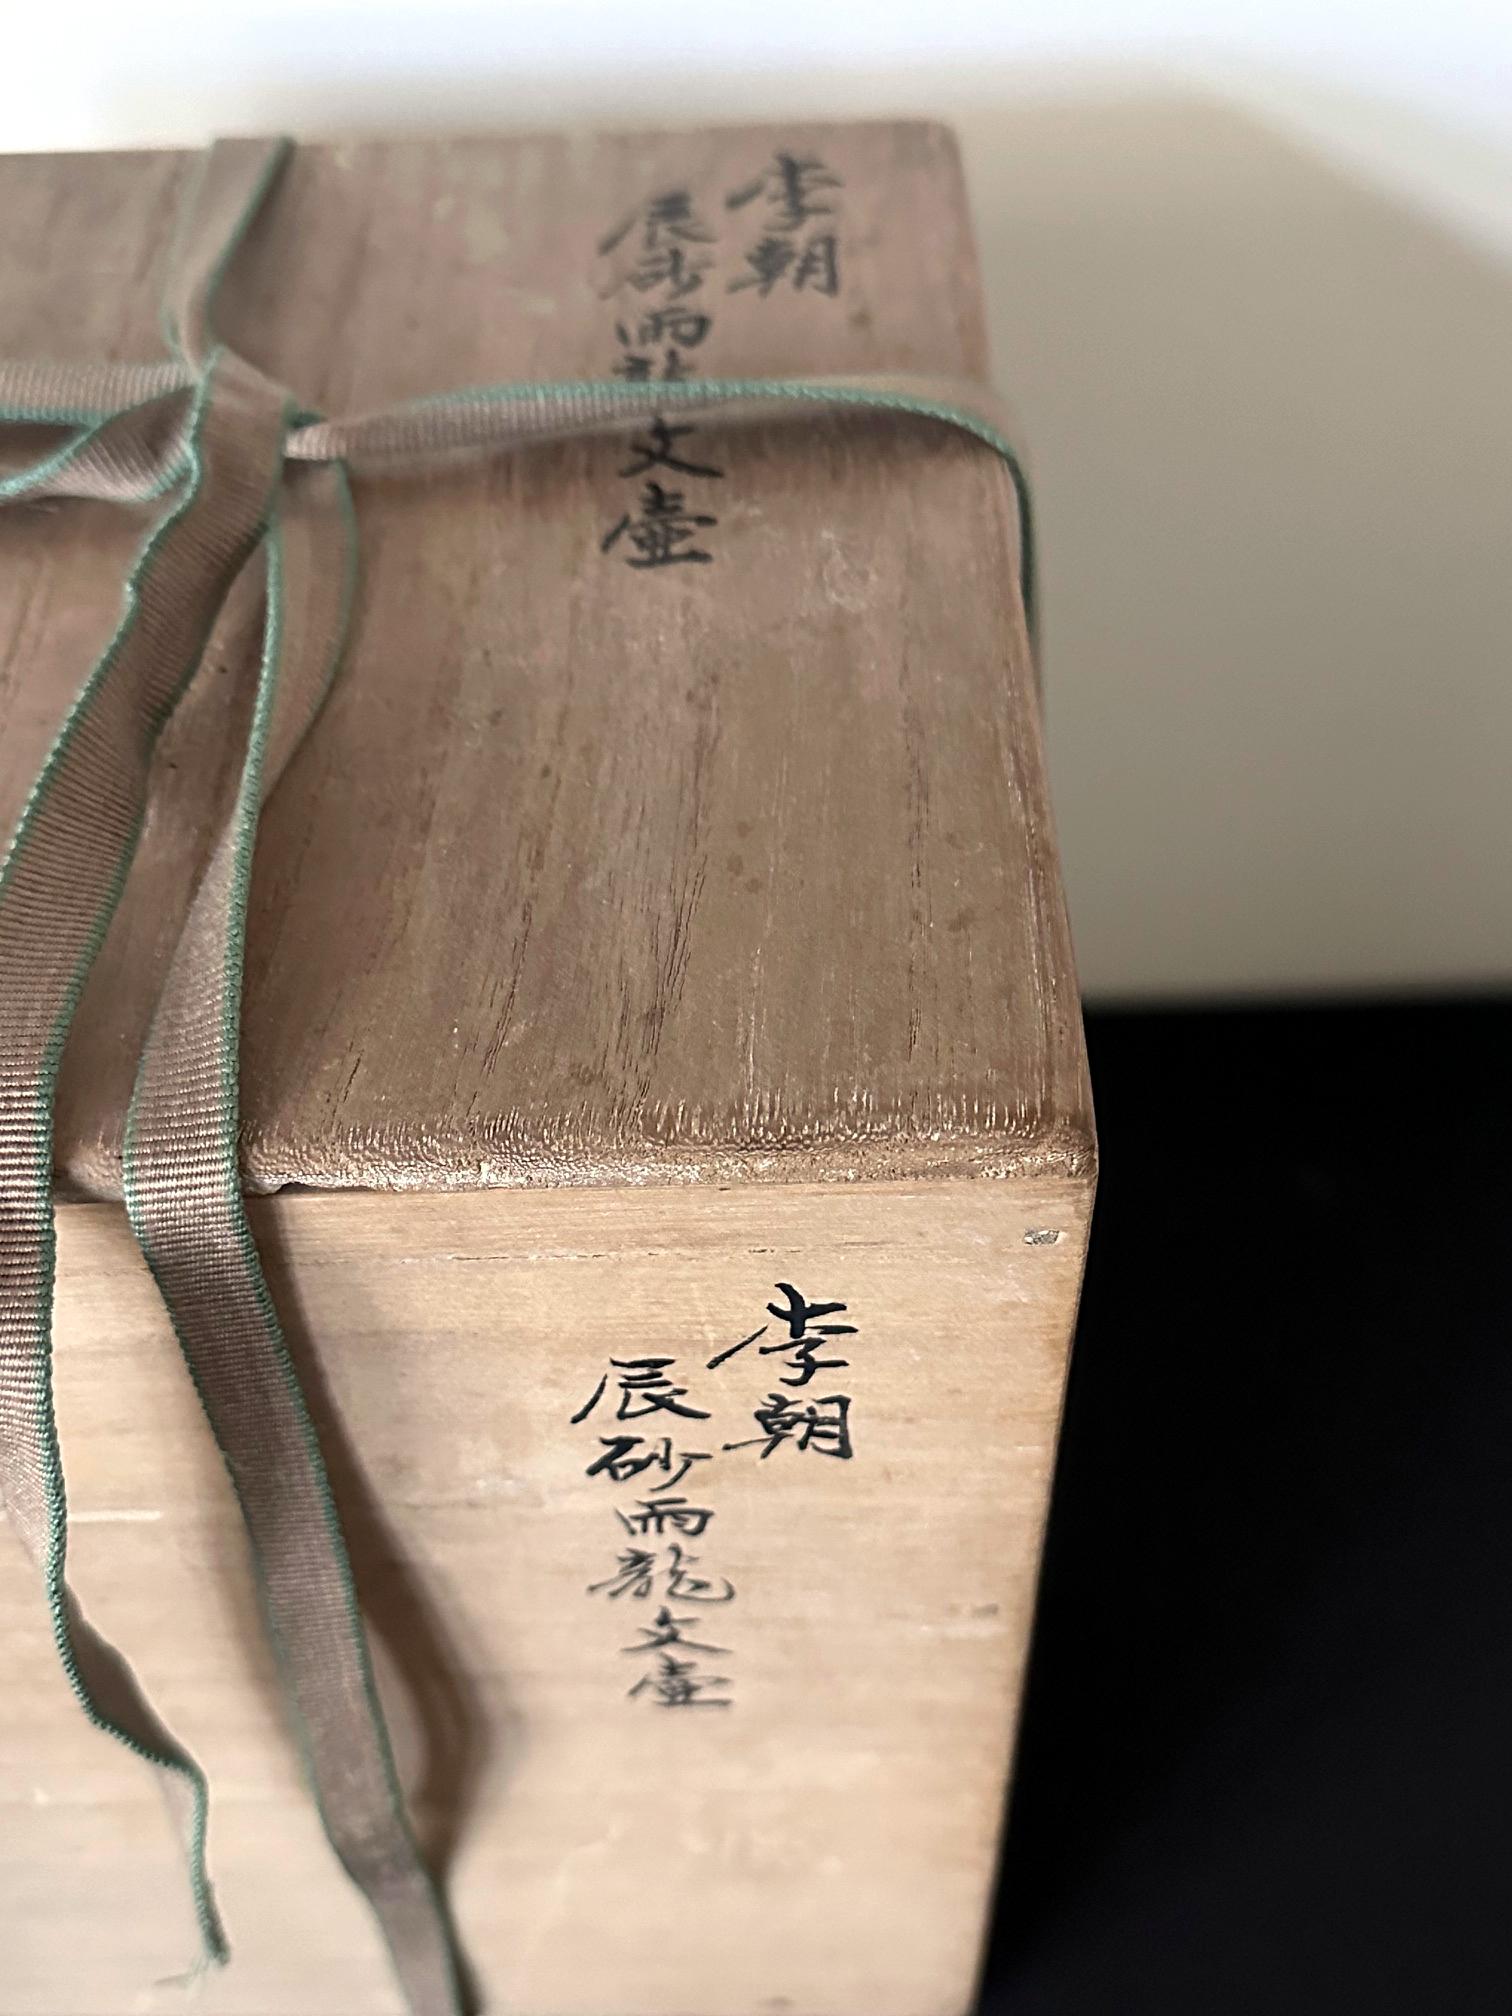 李朝
辰砂雨龍文壷
李朝
辰砂雨龍文壷